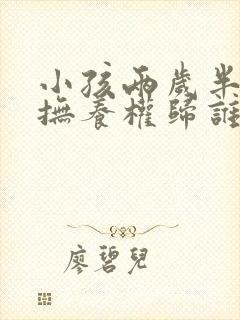 小孩兩歲半
撫養權歸誰
廖碧兒